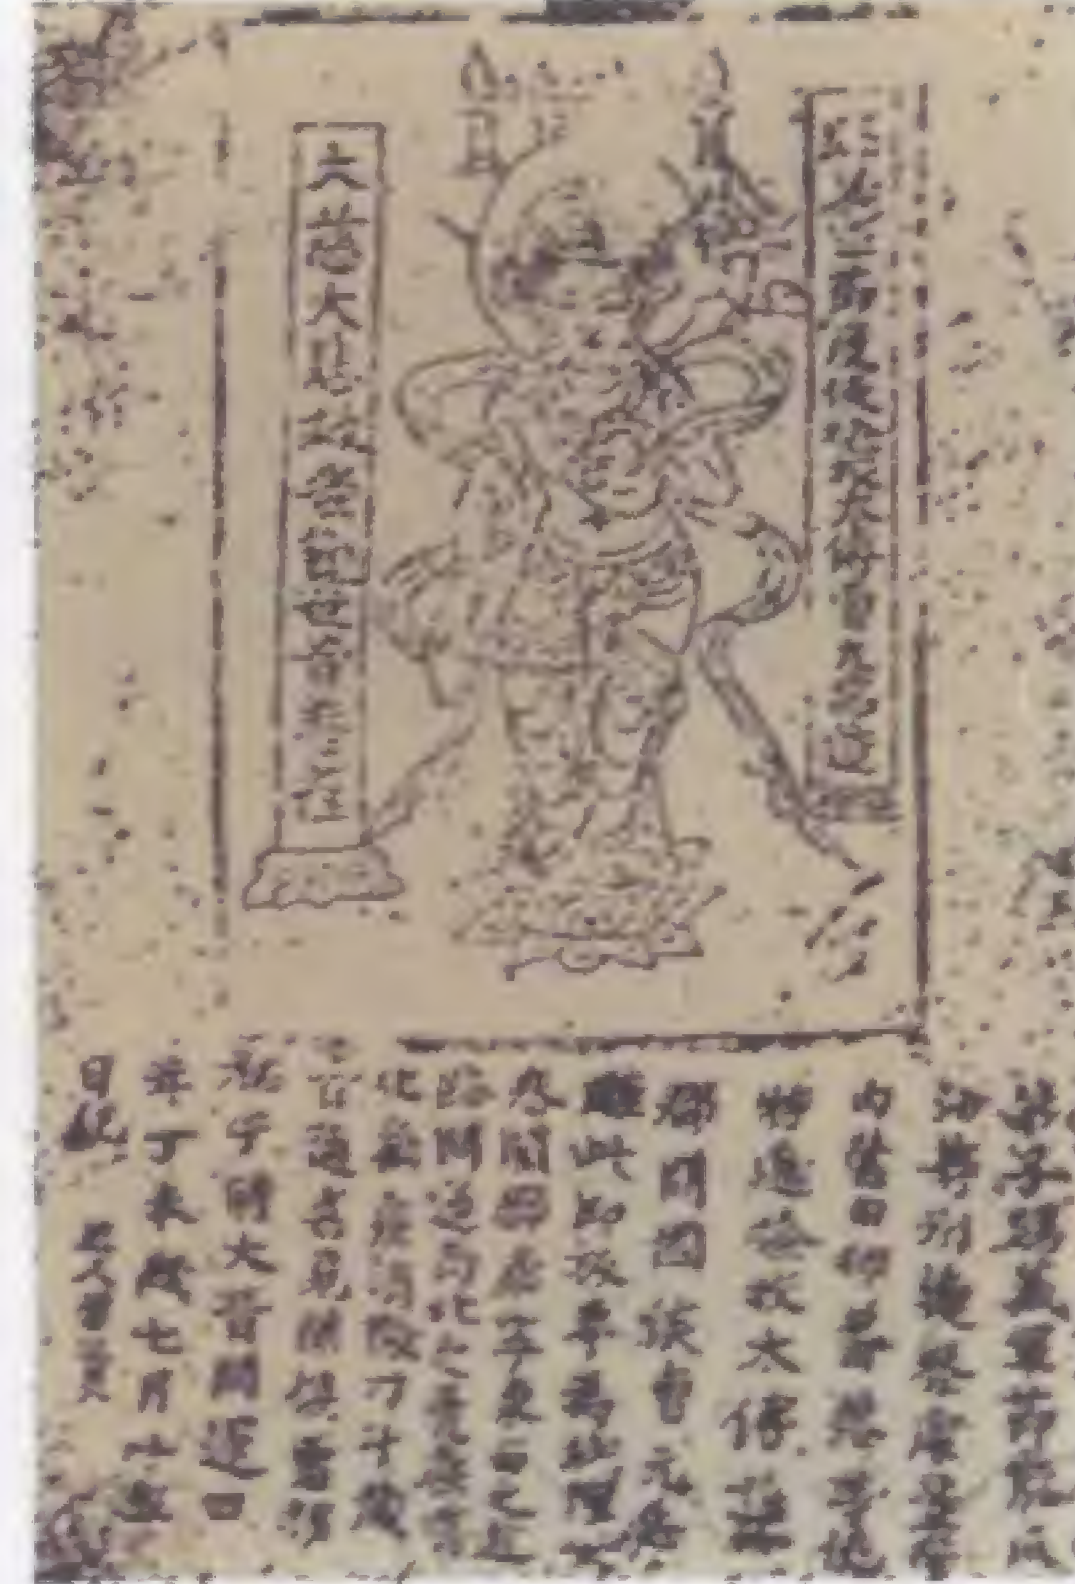 歸義軍節度使檢校太傅曹元忠造
大慈大悲救苦觀世音菩薩
弟子歸義軍節度瓜
沙等州觀察處置管
內營田押蕃落等使
特進檢校太傅譙
郡開國侯曹元忠
雕此印板奉為城隍安
泰闔郡康寧東西之道
路開通南北之凶渠順
化癘疾消散刁斗藏
音隨喜見聞俱霑福
祐于時大晉開運四
年丁未歲七月十五
日紀 匠人雷延美